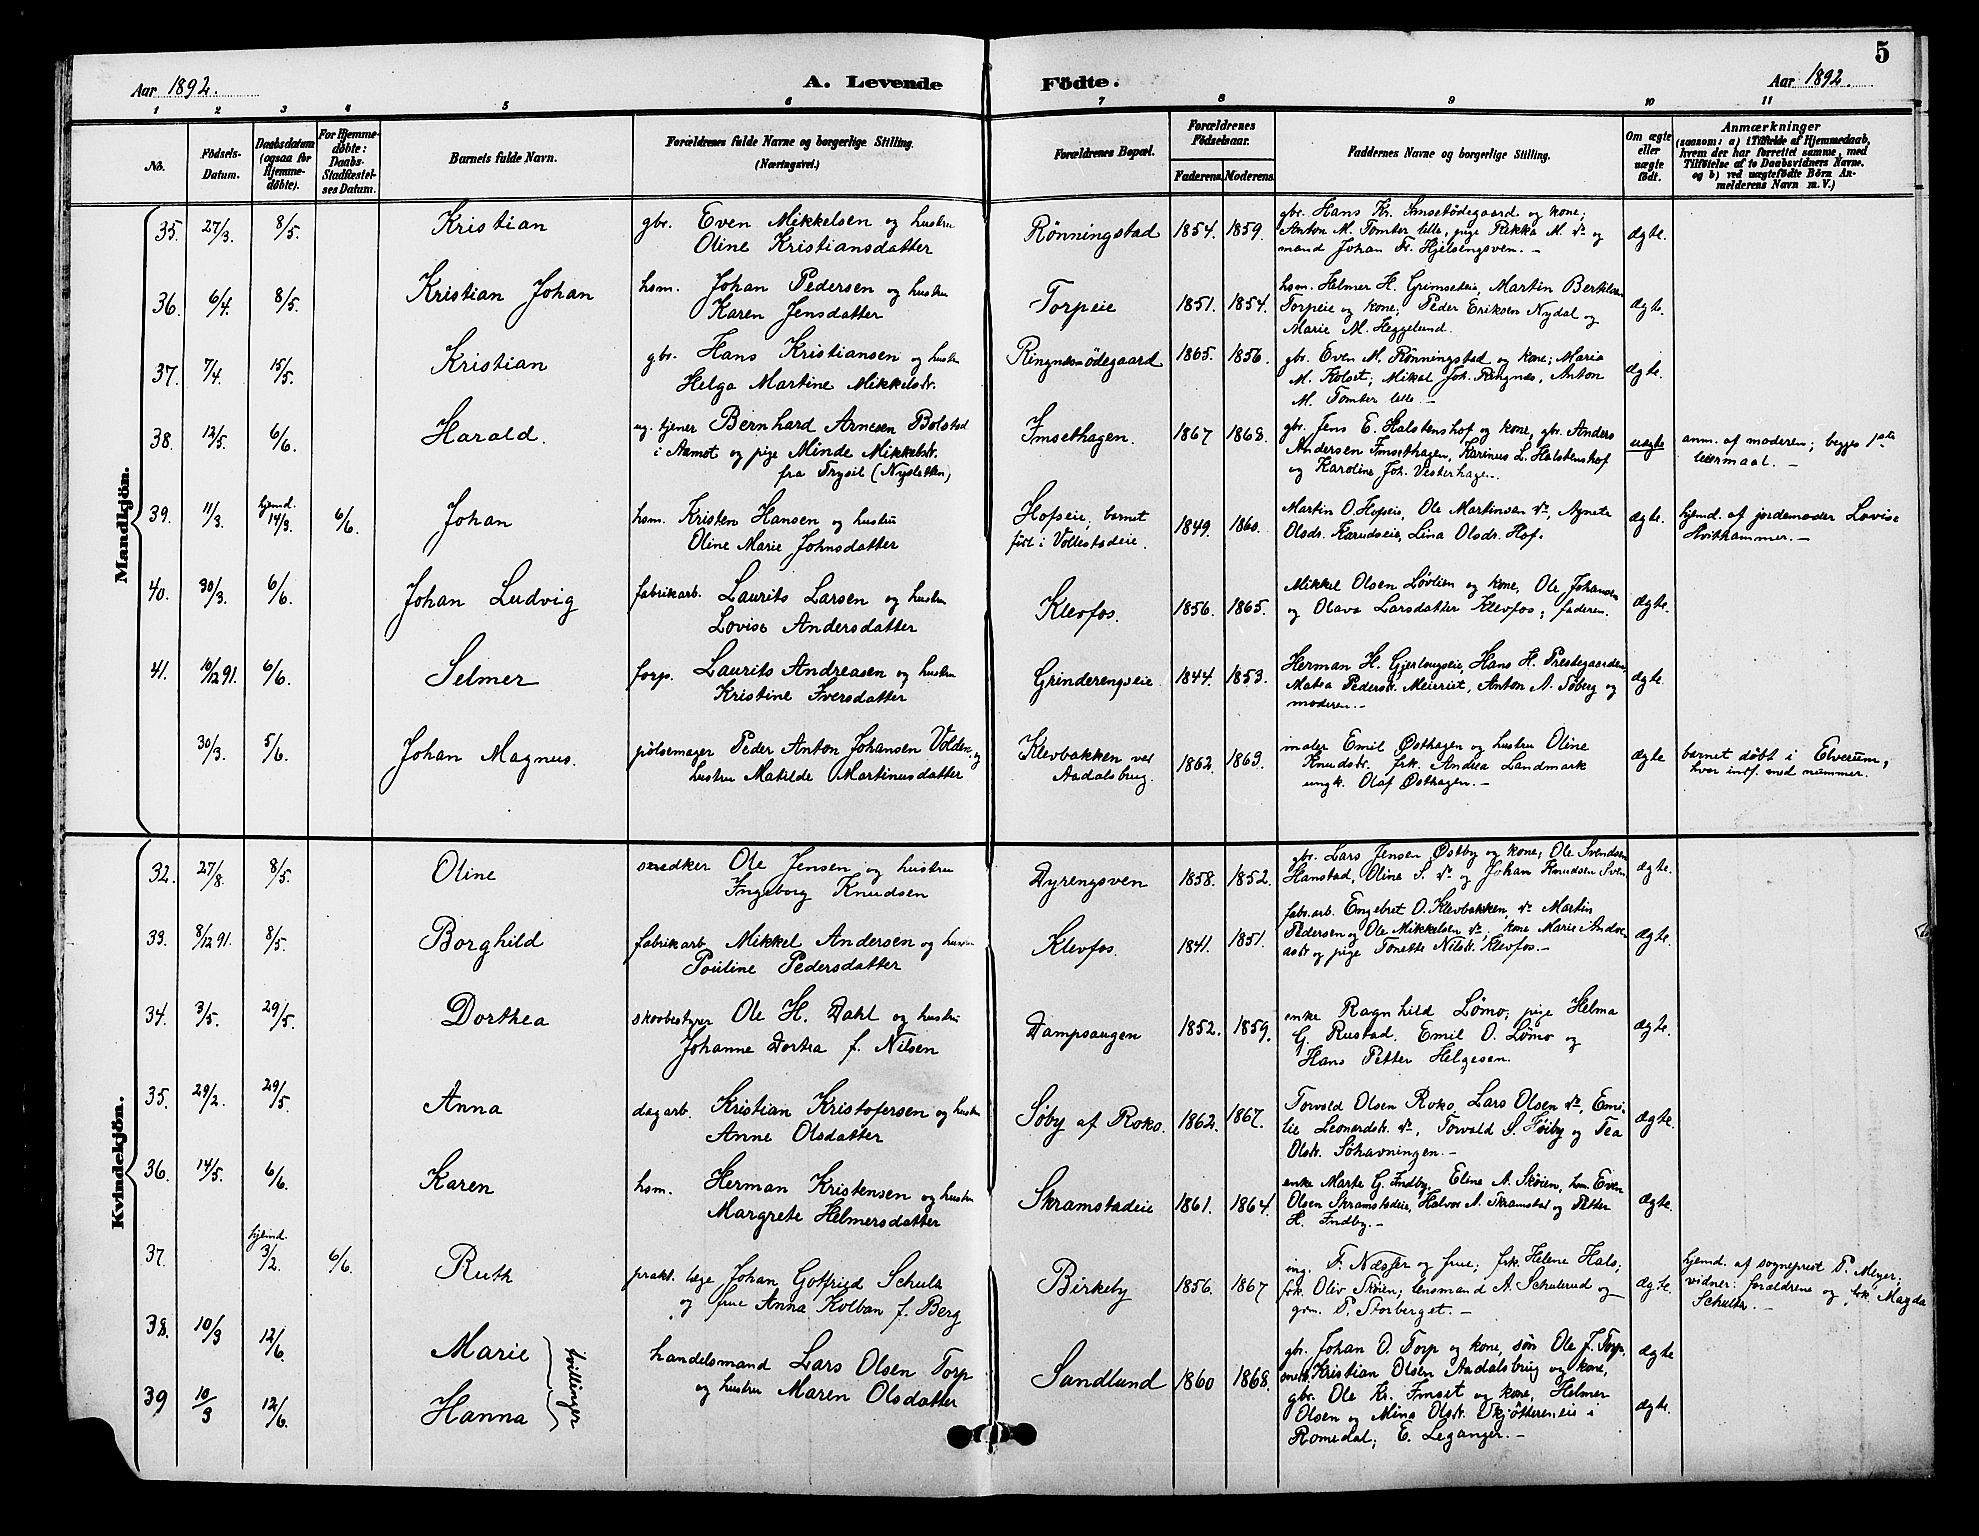 5
Aar 1892.
A. Levende Födte.
Aar 1892.
1 2 3 4 5 6 7 8 9 10 11
No.
Födsels-Datum.
Daabsdatum (ogsaa for Hjemme-döbte).
For Hjemme-döbte: Daabs-Stadfæstel-ses Datum.
Barnets fulde Navn.
Forældrenes fulde Navne og borgerlige Stilling. (Næringsvei.)
Forældrenes Bopæl.
Forældrenes Födselsaar.
Faderens. Moderens.
Faddernes Navne og borgerlige Stilling.
Om ægte eller uægte födt.
Anmærkninger
(saasom: a) i Tilfælde af Hjemmedaab, hvem der har forrettet samme, med Tilföielse af to Daabsvidners Navne, og b) ved uægtefödte Börn An-melderens Navn m. V.)
Mandkjön.
35. 27/3. 8/5. Kristian
gbr. Even Mikkelsen og hustru
Oline Kristiansdatter
Rönningstad 1854. 1859.
gbr. Hans Kr. Imsetödegaard og kone;
Anton M. Tomter lille, pige Rikka M. ds og
mand Johan Fr. Hjelsengsven. –
Ægte.
36. 6/4. 8/5. Kristian Johan
hsm. Johan Pedersen og hustru
Karen Jensdatter
Torpeie 1851. 1854.
hsm. Helmer H. Grimseteie, Martin Bertelsen
Torpeie og kone; Peder Eriksen Nydal og
Marie M. Heggelund.
Ægte.
37. 7/4. 15/5. Kristian
gbr. Hans Kristiansen og hustru
Helga Martine Mikkelsdr.
Ringnes-ödegaard 1865. 1856.
gbr. Even M. Rönningstad og kone; Maria
M. Kolset; Mikal Joh. Ringnes, Anton
M. Tomter lille. –
Ægte.
38. 12/5. 6/6. Harald.
ug. tjener Bernhard Arnesen Bolstad
i Aamot og pige Minde Mikkelsdr.
fra Trysil (Nysletten)
Imsethagen. 1867 1868.
gbr. Jens E. Halstenshof og kone, gbr. Anders
Andersen Imsethagen, Karinus L. Halstenshof
og Karoline Joh. Vesterhagen.
uægte
anm. af moderen; begges 1ste
leiermaal. –
39. 11/3. hjemd. 14/3. 6/6. Johan
hsm. Kristen Hansen og hustru
Oline Marie Johnsdatter
Hofseie; barnet
födt i Vollestadeie. 1849. 1860.
Martin O. Hofseie, Ole Martinsen ds, Agnete
Olsdr. Karudseie, Lina Olsdr. Hof.
Ægte.
hjemd. af jordemoder Lovise
Hvithammer. –
40. 30/3. 6/6. Johan Ludvig
fabrikarb. Laurits Larsen og hustru
Lovise Andersdatter
Klevfos. 1856. 1865.
Mikkel Olsen Lövlien og kone, Ole Johansen
og Olava Larsdatter Klevfos; faderen.
Ægte.
41. 10/12 91. 6/6. Selmer
forp. Laurits Andreasen og hustru
Kristine Iversdatter
Grinderengseie 1844. 1853.
Herman H. Gjerlaugseie, Hans H. Prestegaarden
Matea Pedersdr. Meieriet, Anton A. Söberg og
moderen. –
Ægte.
30/3. 5/6. Johan Magnus.
pölsemager Peder Anton Johansen Volden og
hustru Matilde Martinusdatter
Klevbakken ved
Aadalsbrug. 1862. 1863.
maler Emil Østhagen og hustru Oline
Knudsdr. frk. Andrea Landmark
ungk. Olaf Østhagen. –
Ægte
barnet döbt i Elverum,
hvor intf. med nummer.
Kvindekjön.
32. 27/8. 8/5. Oline
snedker Ole Jensen og hustru
Ingeborg Knudsen
Dyrengsven 1858. 1852.
gbr. Lars Jensen Østby og kone; Ole Svendsen
Hanstad, Oline S. ds og Johan Knudsen Sven
Ægte.
33. 8/12 91. 8/5. Borghild
fabrikarb. Mikkel Andersen og hustru
Pouline Pedersdatter
Klevfos. 1841. 1851.
fabr.arb. Engebret O. Klevbakken, ds Martin
Pedersen og Ole Mikkelsen ds, kone Marie Andre-
asdr og pige Tonette Nilsdr. Klevfos. –
Ægte.
34. 3/5. 29/5. Dorthea
skovbestyrer Ole H. Dahl og hustru
Johanne Dortea f. Nilsen
Dampsaugen 1852. 1859.
enke Ragnhild Lömo, pige Helma
G. Rustad, Emil O. Lömo og
Hans Petter Helgesen.
Ægte.
35. 29/2. 29/5. Anna
dagarb. Kristian Kristofersen og hustru
Anne Olsdatter
Söby af Roko. 1862. 1867.
Torvald Olsen Roko, Lars Olsen ds, Emi-
lie Leonardsdr. ds, Torvald S. Höiby og Tea
Olsdr. Söhavningen. –
Ægte.
36. 14/5. 6/6. Karen
hsm. Herman Kristensen og hustru
Margrete Helmersdatter
Skramstadeie 1861. 1864.
enke Marte G. Indby, Eline A. Sköien, hsm. Even
Olsen Skramstadeie, Halvor A. Skramstad og Petter
H. Indby. –
Ægte.
37. hjemd. 3/2. 6/6. Ruth
prakt. læge Johan Gotfried Schulz
og frue Anna Kolban f. Berg
Birkeby 1856. 1867
ing. F. Næsser og frue; frk. Helene Hals;
frk. Oliv Sköien; lensmand A. Schulerud og
grm. P. Storberget. –
Ægte.
hjemd. af sogneprest P. Meyer;
vidner: forældrene og frk. Magda
Schultz. –
38. 10/3 12/6. Marie
39 10/3 12/6. Hanna
tvillinger
handelsmand Lars Olsen Torp
og hustru Maren Olsdatter
Sandlund 1860 1868.
gbr. Johan O. Torp og kone, sön Ole J. Torp.
Kristian Olsen Aadalsbrug og kone,
gbr. Ole Kr. Imset og kone, Helmer
Olsen og Mina Olsdr. Skjöttereneie i
Romedal; E. Leganger. –
Ægte
Ægte.